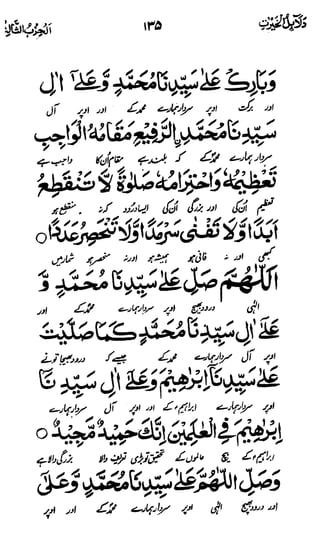 دلائل الخیرات ۱۳۵ الحزب الثالث
وَبَارِكْ عَلٰى سَيِّدِنَا مُحَمَّدٍ وَّعَلٰٓى اٰلِ
اور برکت اوپر سردار ہمارے محمدؐ کے اور اوپر آل
سَيِّدِنَا مُحَمَّدِ ِالرَّفِيْعِ مَقَامُهُ الْوَاجِبِ
سردار ہمارے محمدؐ کے کہ بلند ہے مقام اُن کا واجب ہے
تَعْظِيْمُهٗ وَاحْتِرَامُهٗ صَلٰوةً لَّا تَنْقَطِعُ
تعظیم اُن کی اور بزرگی اُن کی ایسا درود کہ نہ منقطع ہو
اَبَدًا وَّلَا تَفْنٰى سَرْمَدًا وَّلَا تَنْحَصِرُ عَدَدًا ○
کبھی اور نہ فانی ہو ہمیشہ ہو اور نہ منحصر ہو شمار میں
اَللّٰهُمَّ صَلِّ عَلٰى سَيِّدِنَا مُحَمَّدٍ وَّ
الٰہی درود بھیج اوپر سردار ہمارے محمدؐ کے اور
عَلٰٓى اٰلِ سَيِّدِنَا مُحَمَّدٍ كَمَا صَلَّيْتَ
اوپر آل سردار ہمارے محمدؐ کے جیسے کہ درود بھیجا تونے
عَلٰى سَيِّدِنَا اِبْرٰهِيْمَ وَعَلٰٓى اٰلِ سَيِّدِنَا
اوپر سردار ہمارے ابراہیمؑ کے اور اوپر آل سردار ہمارے
اِبْرٰهِيْمَ فِي الْعٰلَمِيْنَ اِنَّكَ حَمِيْدٌ مَّجِيْدٌ ○
ابراہیمؑ کے بیچ عالموں کے تحقیق تو ہی تعریف والا بزرگی والا ہے
وَصَلِّ اللّٰهُمَّ عَلٰى سَيِّدِنَا مُحَمَّدٍ وَّعَلٰٓى
اور درود بھیج الٰہی اوپر سردار ہمارے محمدؐ کے اور اوپر